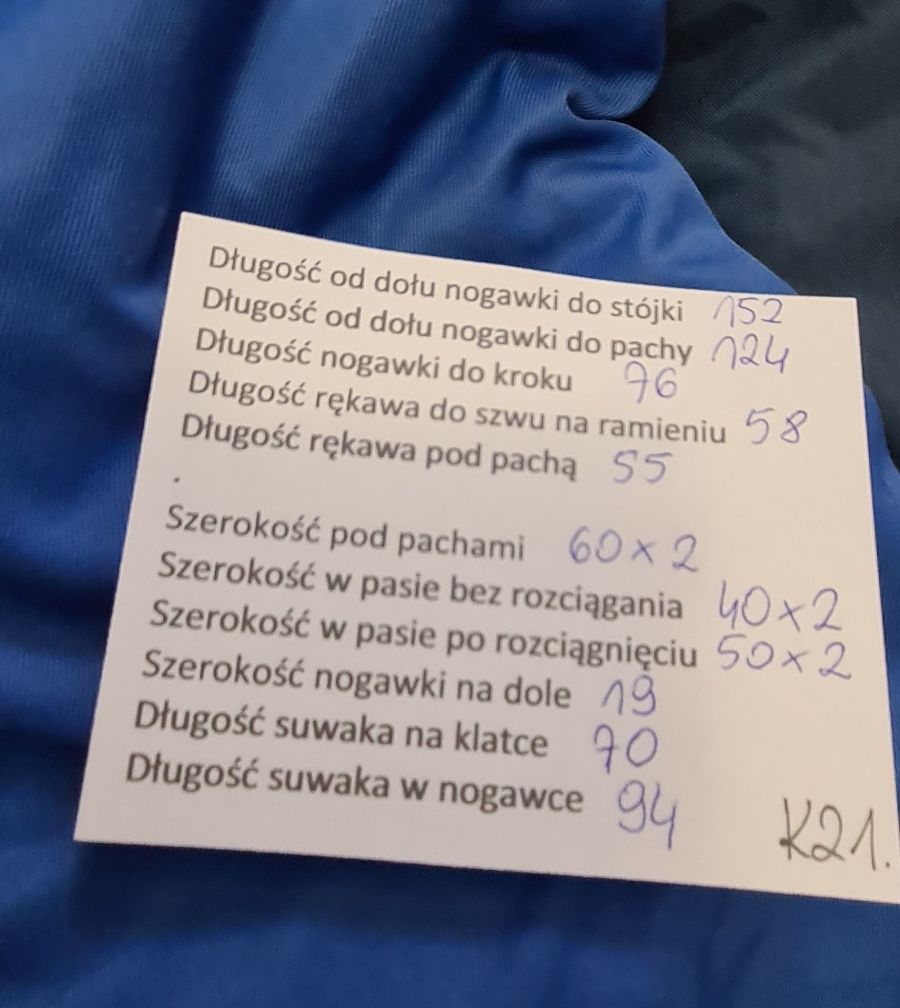 Długość od dołu nogawki do stójki 152
Długość od dołu nogawki do pachy 124
Długość nogawki do kroku 76
Długość rękawa do szwu na ramieniu 58
Długość rękawa pod pachą 55
.
Szerokość pod pachami 60 x 2
Szerokość w pasie bez rozciągania 40 x 2
Szerokość w pasie po rozciągnięciu 50 x 2
Szerokość nogawki na dole 19
Długość suwaka na klatce 70
Długość suwaka w nogawce 94
K21.